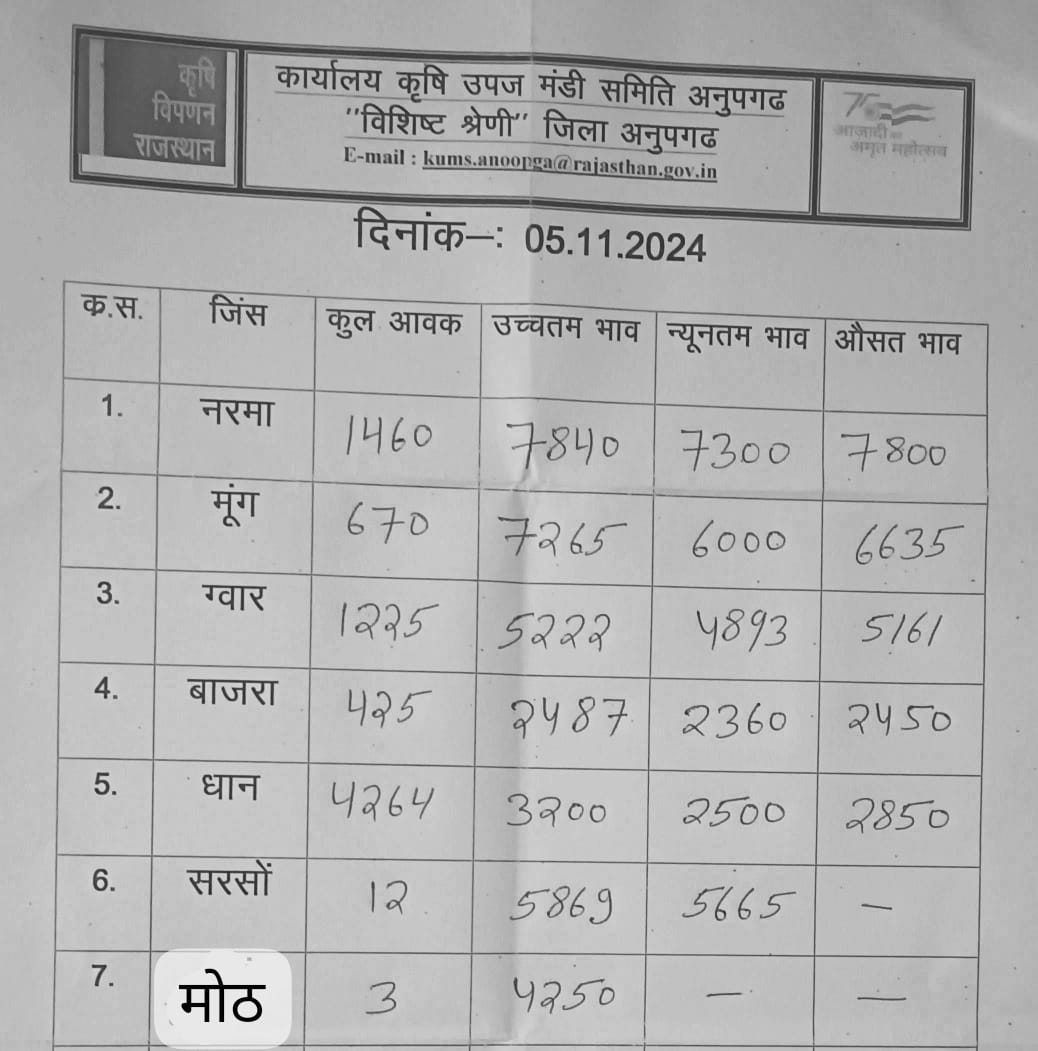 कृषि
विपणन
राजस्थान
कार्यालय कृषि उपज मंडी समिति अनुपगढ
''विशिष्ट श्रेणी'' जिला अनुपगढ
E-mail : kums.anoopga@rajasthan.gov.in
75
आज़ादी का
अमृत महोत्सव
दिनांक–: 05.11.2024
क.स. जिंस कुल आवक उच्चतम भाव न्यूनतम भाव औसत भाव
1. नरमा 1460 7840 7300 7800
2. मूंग 670 7265 6000 6635
3. ग्वार 1225 5222 4893 5161
4. बाजरा 425 2487 2360 2450
5. धान 4264 3200 2500 2850
6. सरसों 12 5869 5665 —
7. मोठ 3 4250 — —